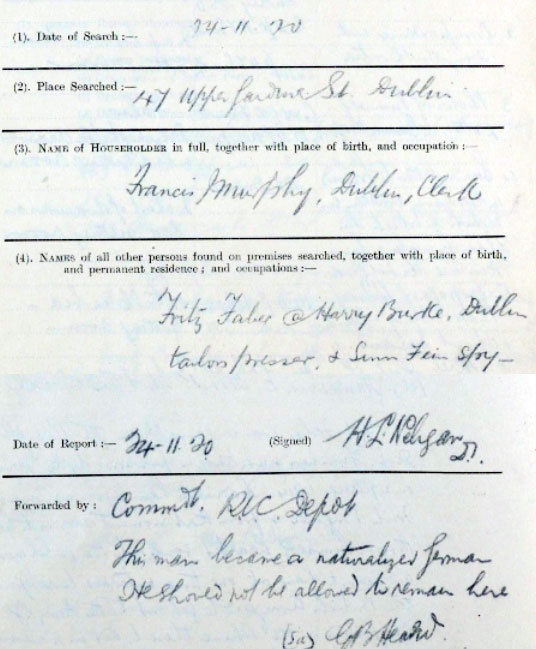 (1). Date of Search :— 24-11-20
(2). Place Searched :— 47 Upper Gardiner St. Dublin
(3). NAME of HOUSEHOLDER in full, together with place of birth, and occupation :—
Francis Murphy, Dublin, Clerk
(4). NAMES of all other persons found on premises searched, together with place of birth,
and permanent residence ; and occupations :—
Fritz Faber @ Harry Burke, Dublin
tailors presser, & Sinn Fein Spy—
Date of Report :— 24-11-20 (Signed)
Forwarded by : Commdt. RIC Depot
This man became a naturalized German
He should not be allowed to remain here
(Sd) G B Heard.